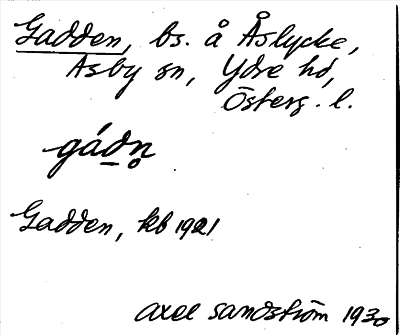 Gadden, bs. å Åslycke,
Asby sn, Ydre hd,
Österg. l.
gádn̥
Gadden, kb 1921
Axel Sandström 1930